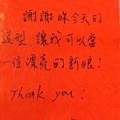 謝謝妳今天的
造型 讓我可以當
一位漂亮的新娘!
Thank you!